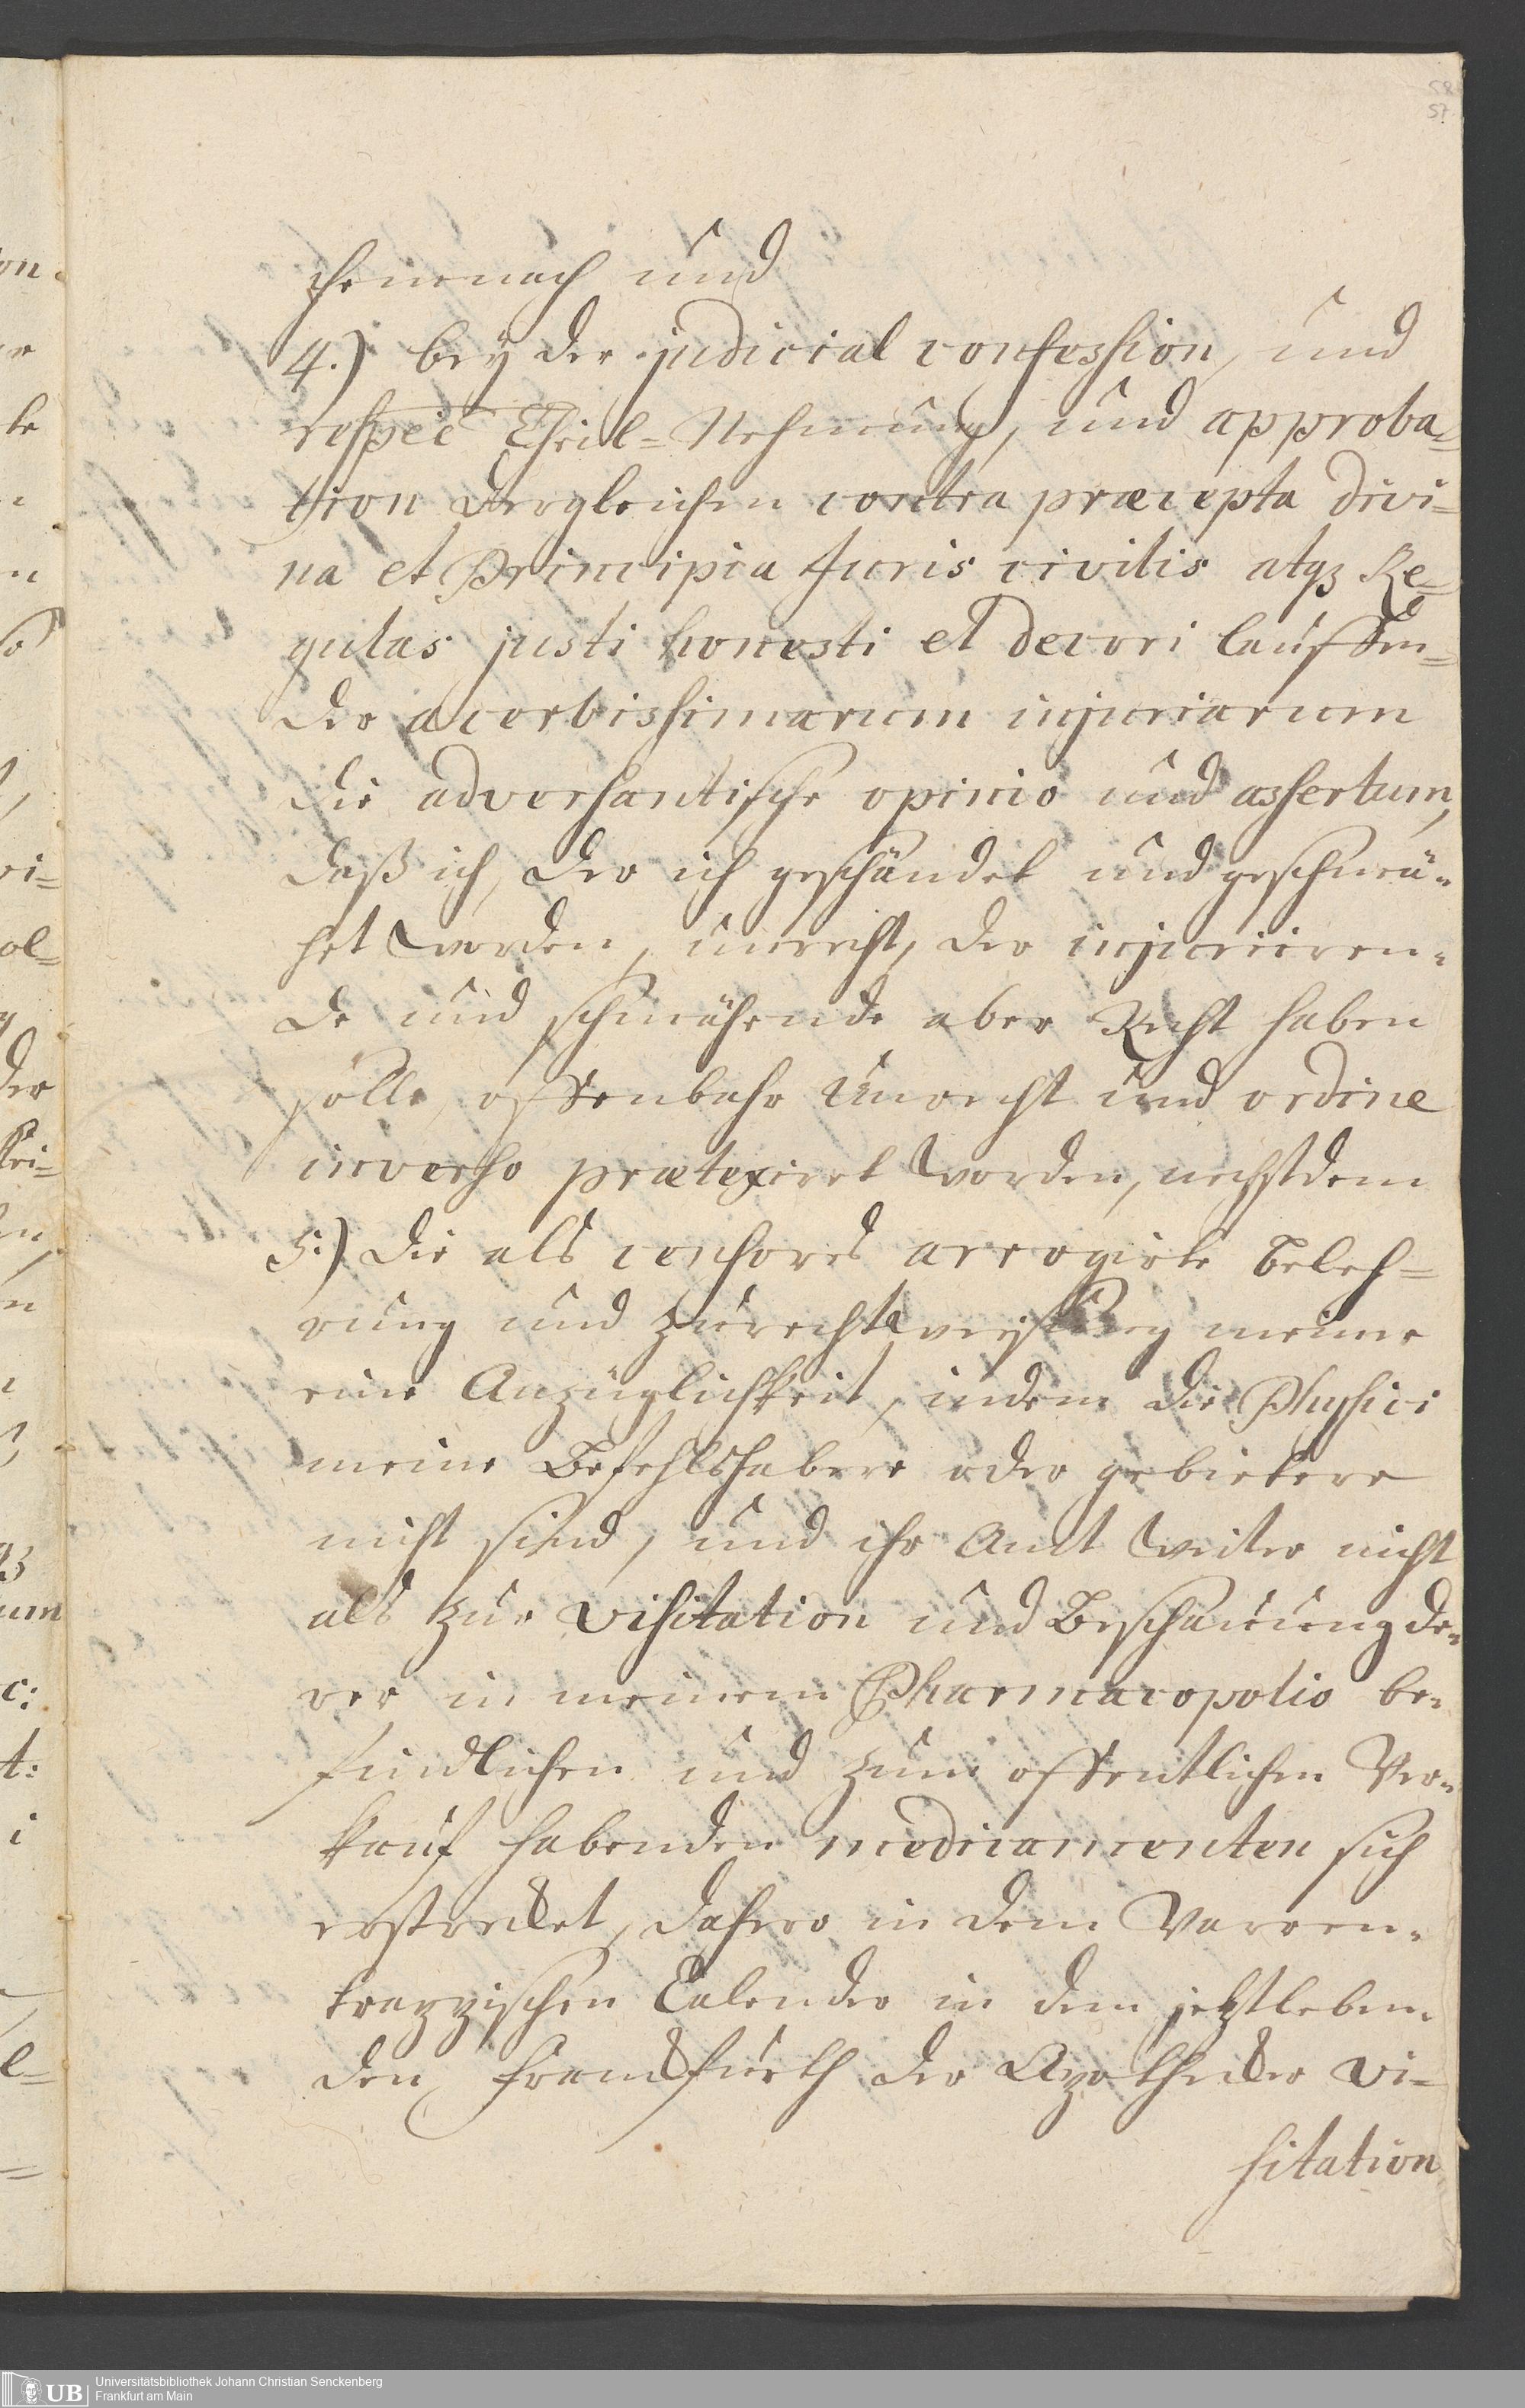 58
57.
hennach und
4.) bey der judicial confession, und
respec Theil=Nehmung, und approba=
tion dergleichen contra præcepta divi=
na et Principia Juris civilis atq3 Re=
gulas justi honesti et decori lauffen=
der acerbissimarum injuriarum
die adversantische opinio und assertum,
daß ich, der ich geschändet und geschmä=
het worden, unrecht, der injuriiren=
de und schmähende aber Recht haben
solle, offenbahr unrecht und ordine
inverso prætexiret worden, nechstdem
5.) die als censores arrogirte Beleh=
rung und Zurechtweisung meiner
eine Anzüglichkeit, indem die Physici
meine Befehlshabere oder gebietere
nicht sind, und ihr Amt weiter nicht
als zur visitation und Beschauung de=
rer in meinem Pharmacopolio be=
findlichen und zum offentlichen Ver=
kauf habenden medicamenten sich
erstrecket, dahero in dem Varren=
trappischen Calender in dem jetztleben=
den Franckfurth der Apothecker vi=
sitation
on
er
te
n
n
so
t,
vi=
ol=
y
der
n
n
um
c:
t:
i
l=
=
UB
Universitätsbibliothek Johann Christian Senckenberg
Frankfurt am Main